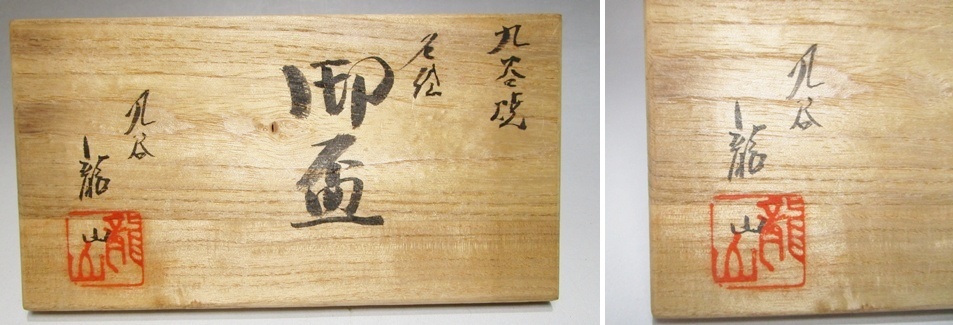 九谷焼
色絵
御盃
九谷
龍山
龍山
九谷
龍山
龍山